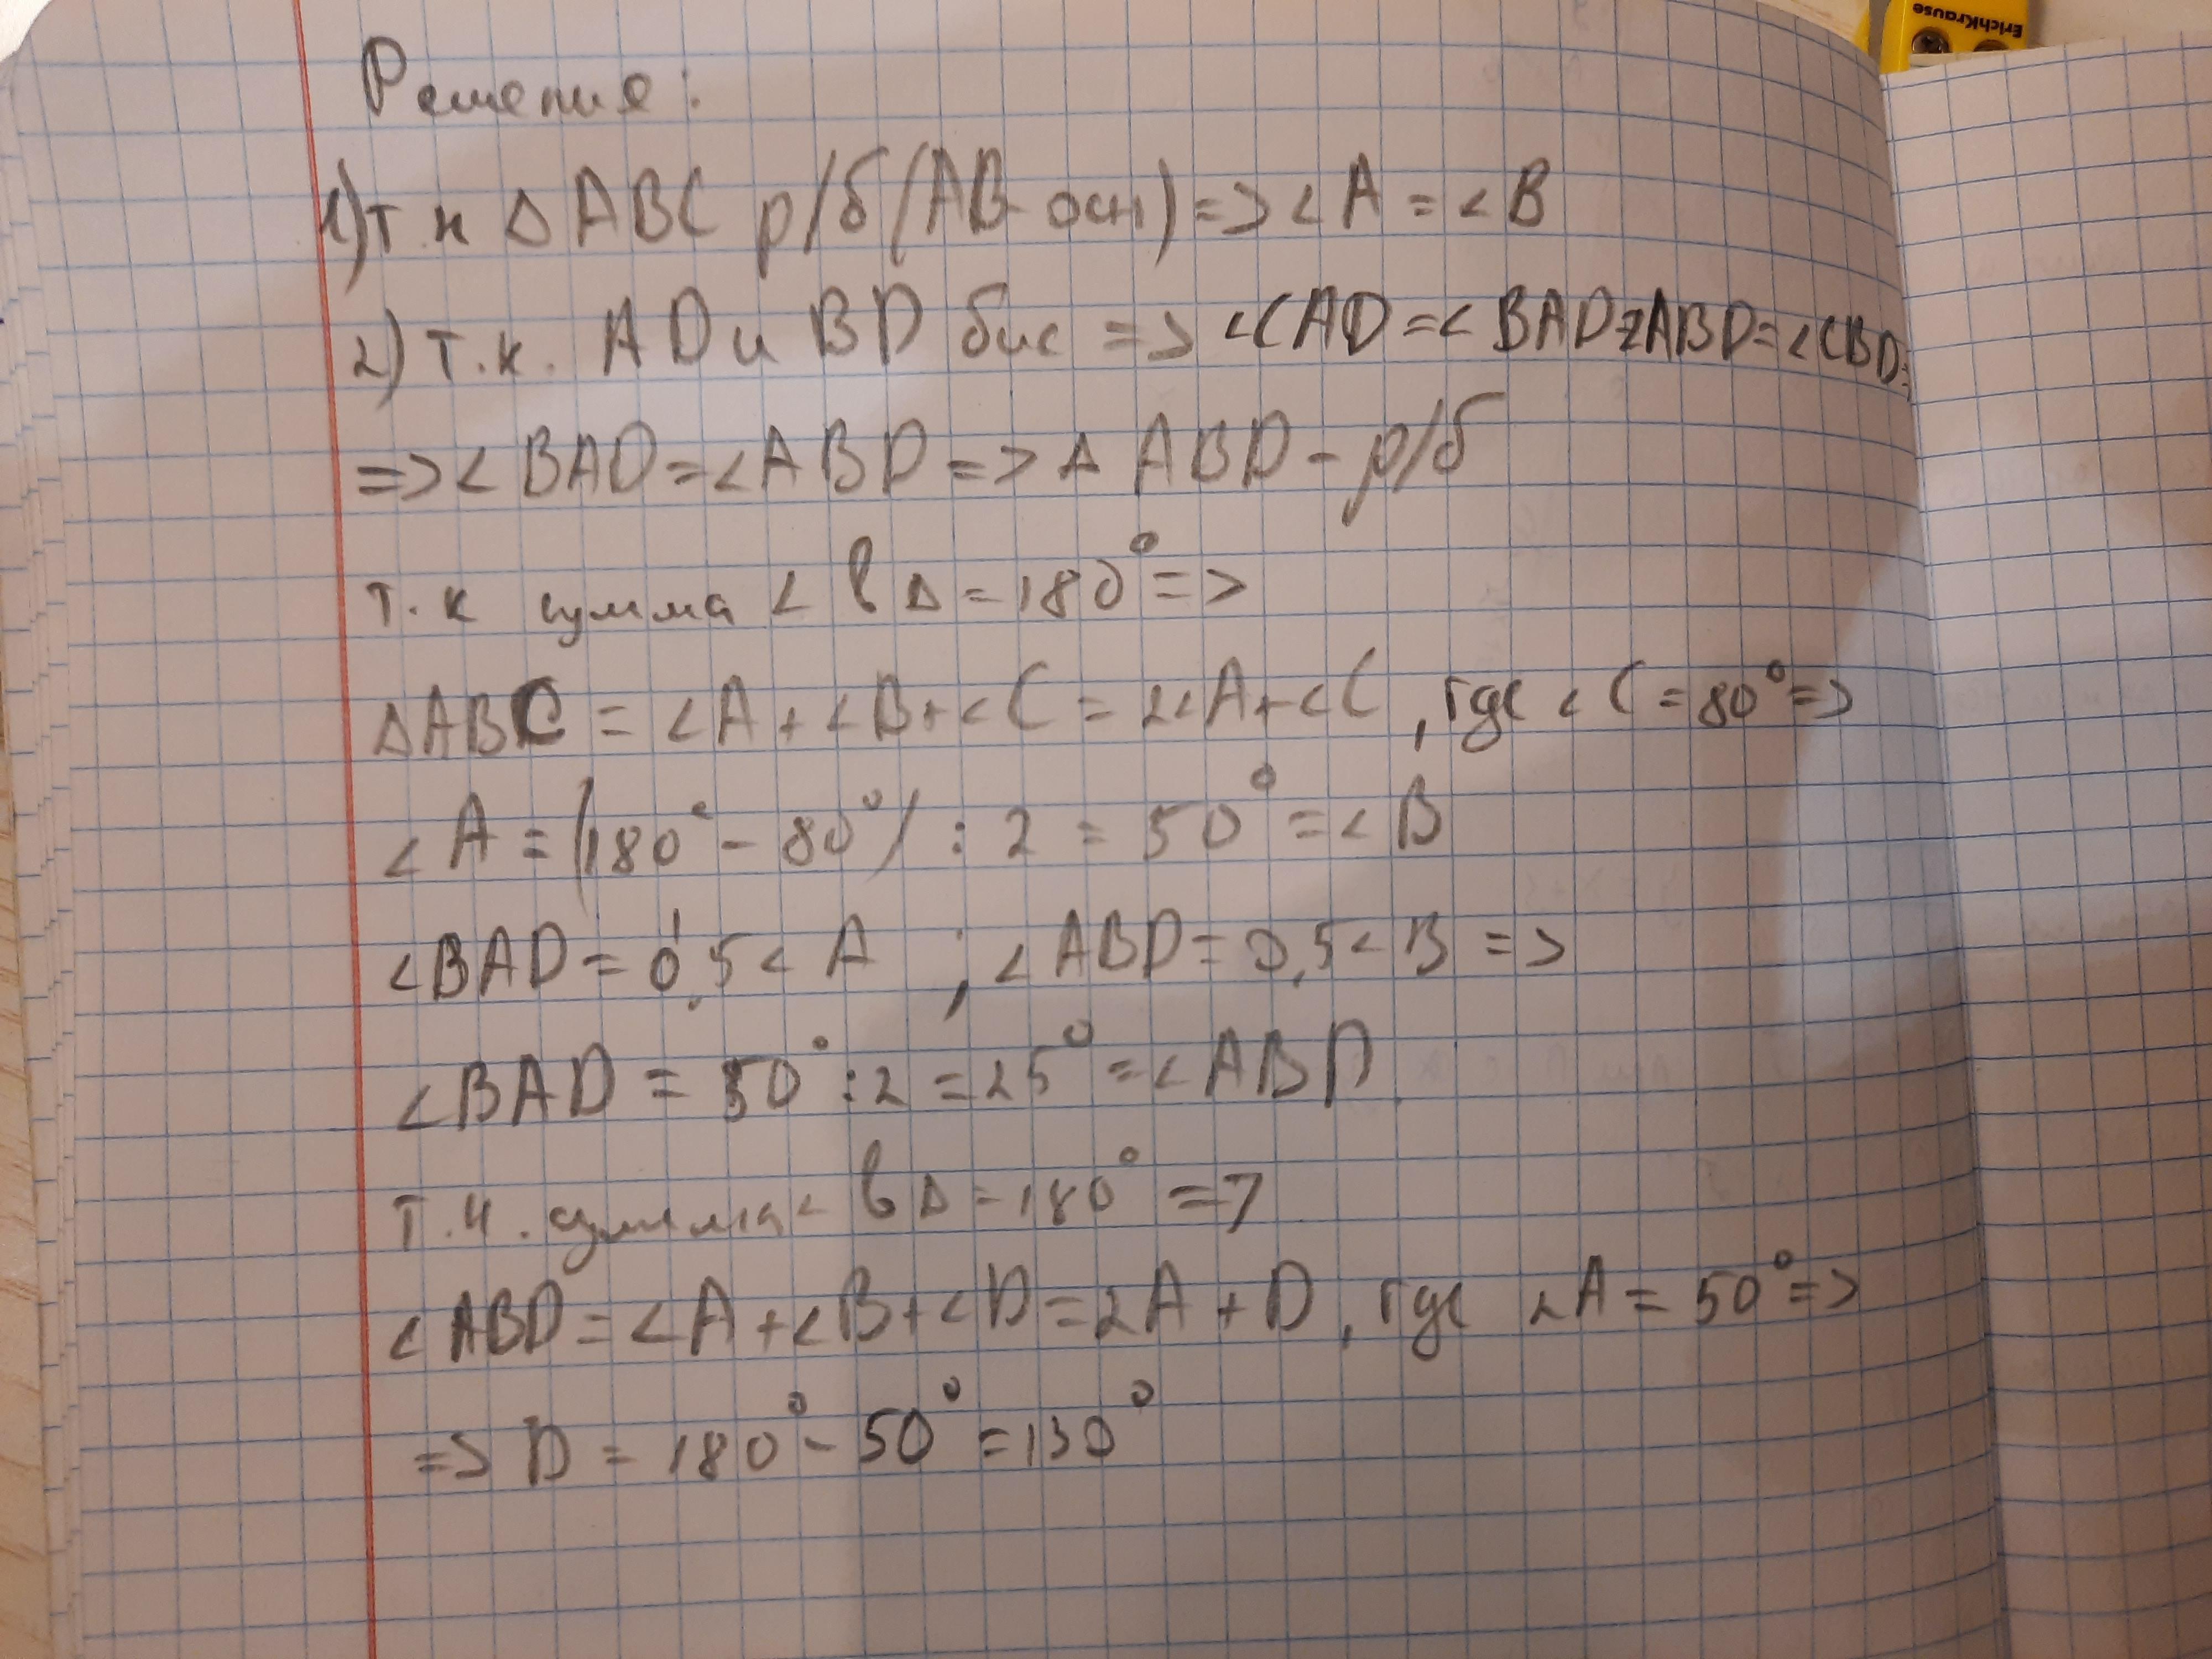 ErichKrause
Решение:
1) т.к △ ABC р/б (AB осн) => ∠A = ∠B
2) т.к. AD и BD бис => ∠CAD = ∠BAD=∠ABD = ∠CBD=
=> ∠BAD = ∠ABD => △ ABD - р/б
т.к сумма ∠ в △ = 180° =>
△ABC = ∠A + ∠B + ∠C = 2∠A + ∠C , где ∠C = 80° =>
∠A = (180° - 80°) : 2 = 50° = ∠B
∠BAD = 0,5∠A ; ∠ABD = 0,5∠B =>
∠BAD = 50° : 2 = 25° = ∠ABD
т.к. сумма ∠ в △ = 180° =>
∠ABD = ∠A + ∠B + ∠D = 2A + D , где 2A = 50° =>
=> D = 180° - 50° = 130°